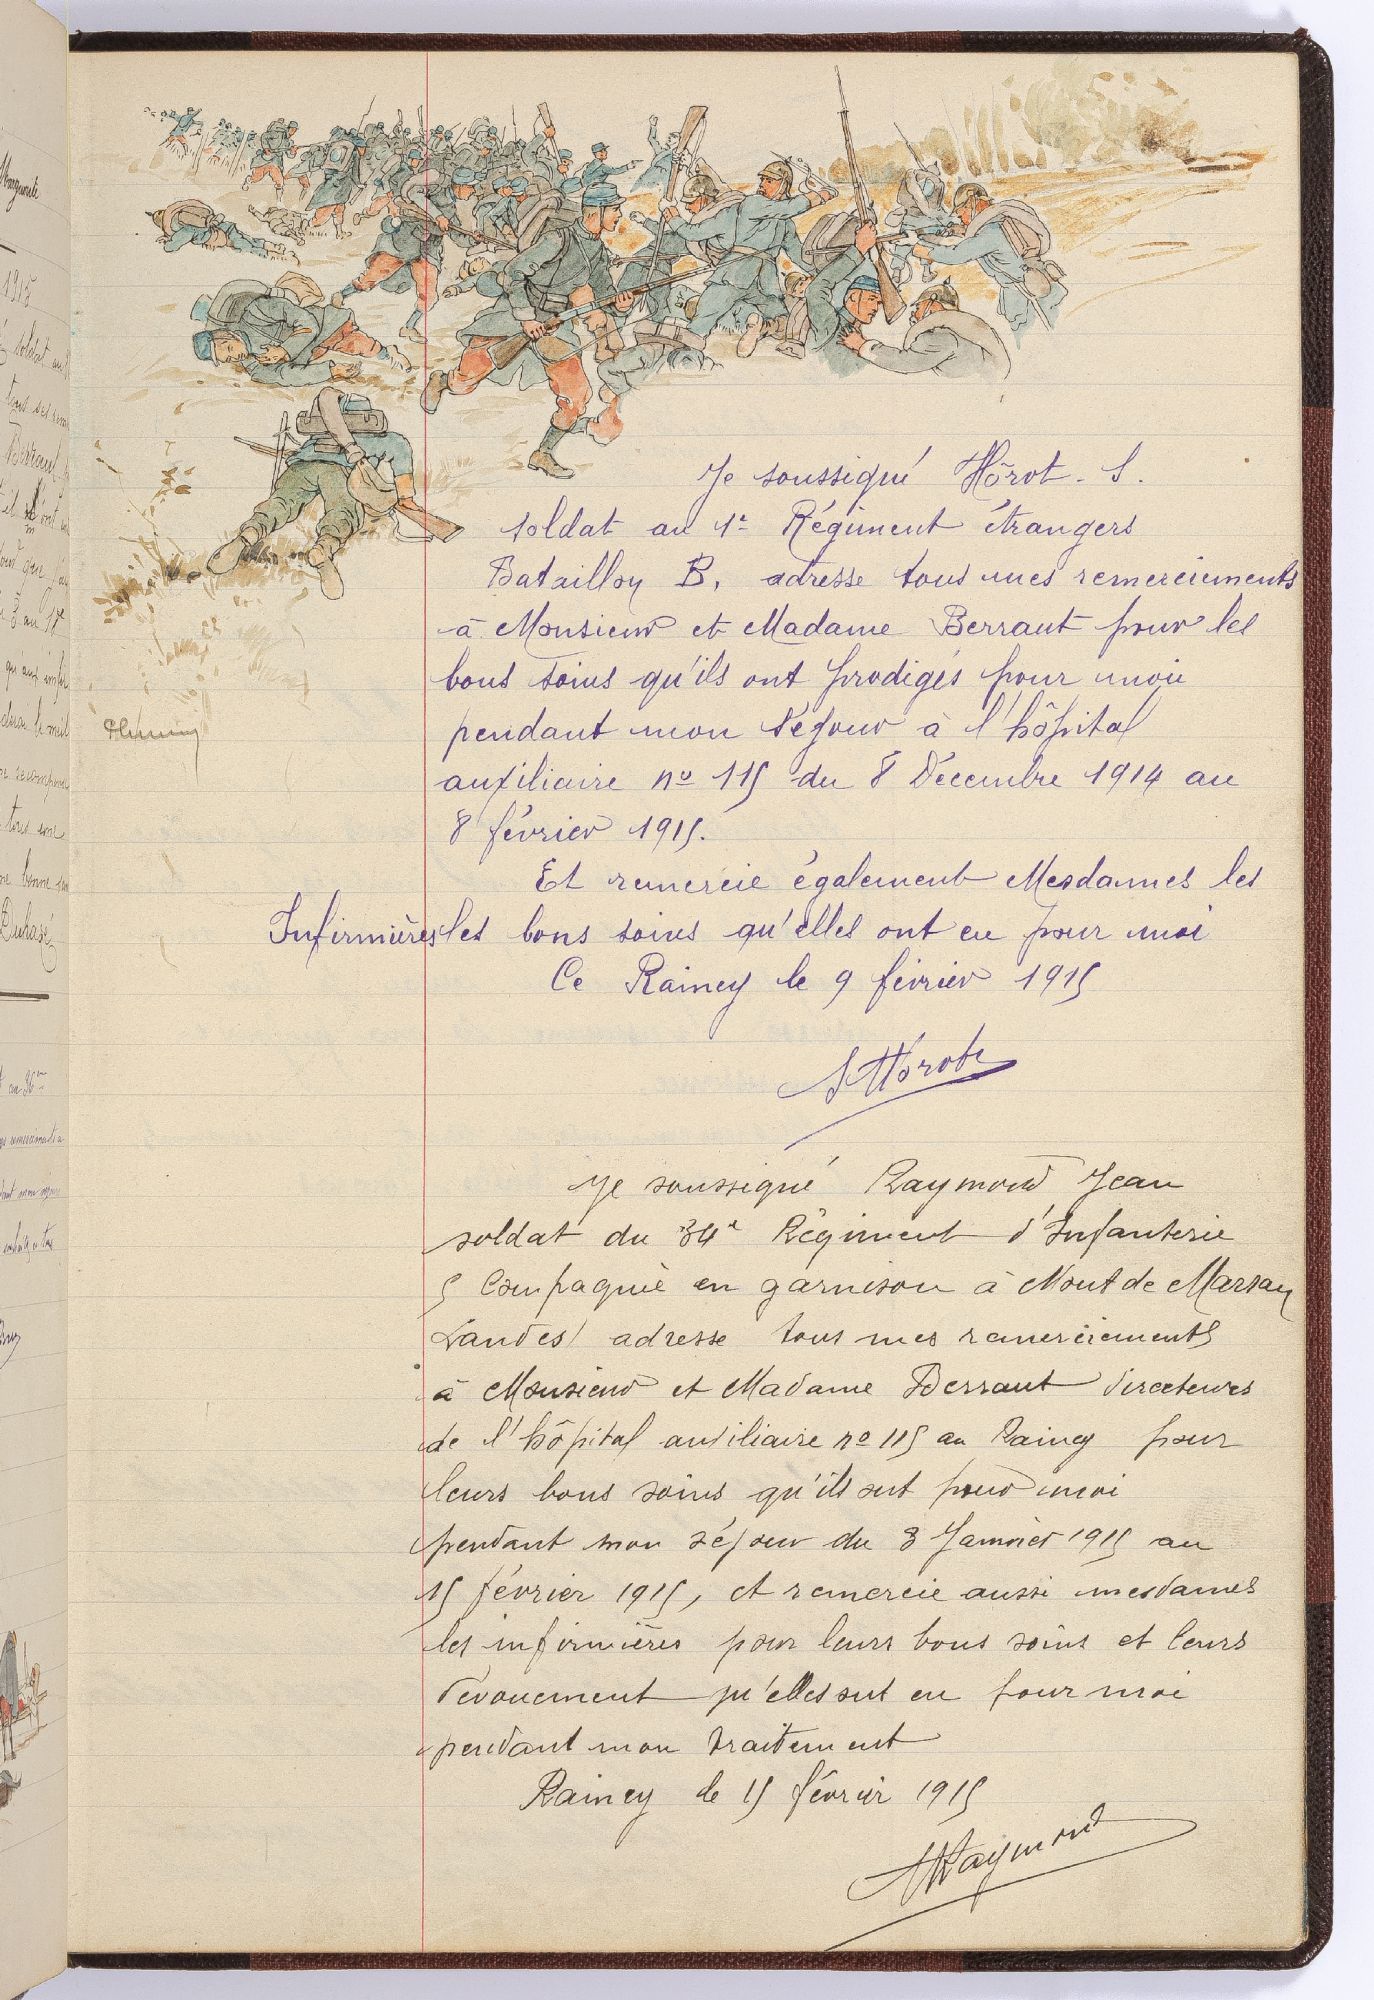 Je soussigné Hôrot. S.
soldat au 1e Régiment étrangers
Bataillon B, adresse tous mes remerciements
à Monsieur et Madame Berraut pour les
bons soins qu'ils ont prodigés pour moi
pendant mon séjour à l'hôpital
auxiliaire no 115 du 8 Décembre 1914 au
8 février 1915.
Et remercie également Mesdammes les
Infirmières les bons soins qu'elles ont eu pour moi
Ce Raincy le 9 février 1915
S Hôrot
Je soussigné Raymond Jean
soldat du 34e Régiment d'Infanterie
5 Compagnie en garnison à Mont de Marsan
Landes) adresse tous mes remerciements
à Monsieur et Madame Berraut directeurs
de l'hôpital auxiliaire no 115 au Raincy pour
leurs bons soins qu'ils ont pour moi
pendant mon séjour du 8 Janvier 1915 au
15 février 1915, et remercie aussi mesdames
les infirmières pour leurs bons soins et leurs
dévouement qu'elles ont eu pour moi
pendant mon traitement
Raincy le 15 février 1915
Raymond